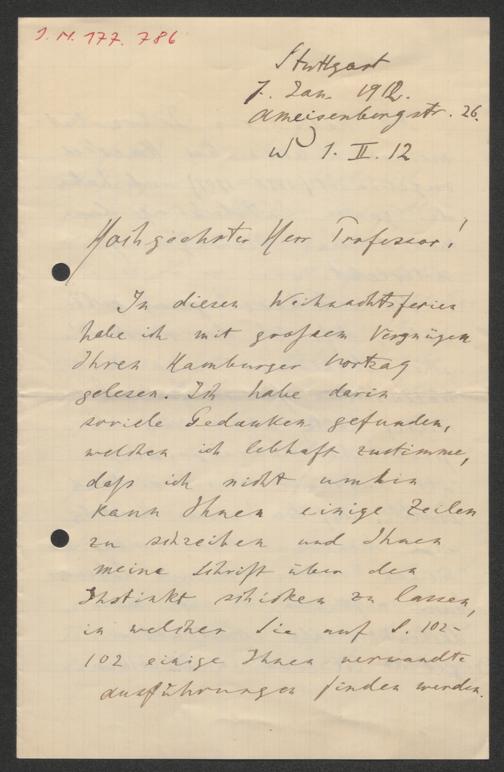 J. N. 177. 786
Stuttgart
7. Jan. 1912.
Ameisenbergstr. 26.
W 1. II. 12
Hochgeehrter Herr Professor!
In diesen Weihnachtsferien
habe ich mit grossem Vergnügen
Ihren Hamburger Vortrag
gelesen. Ich habe darin
soviele Gedanken gefunden,
welchen ich lebhaft zustimme,
daß ich nicht umhin
kann Ihnen einige Zeilen
zu schreiben und Ihnen
meine Schrift über den
Instinkt schicken zu lassen,
in welcher Sie auf S. 102-
102 einige Ihnen verwandte
Ausführungen finden werden.